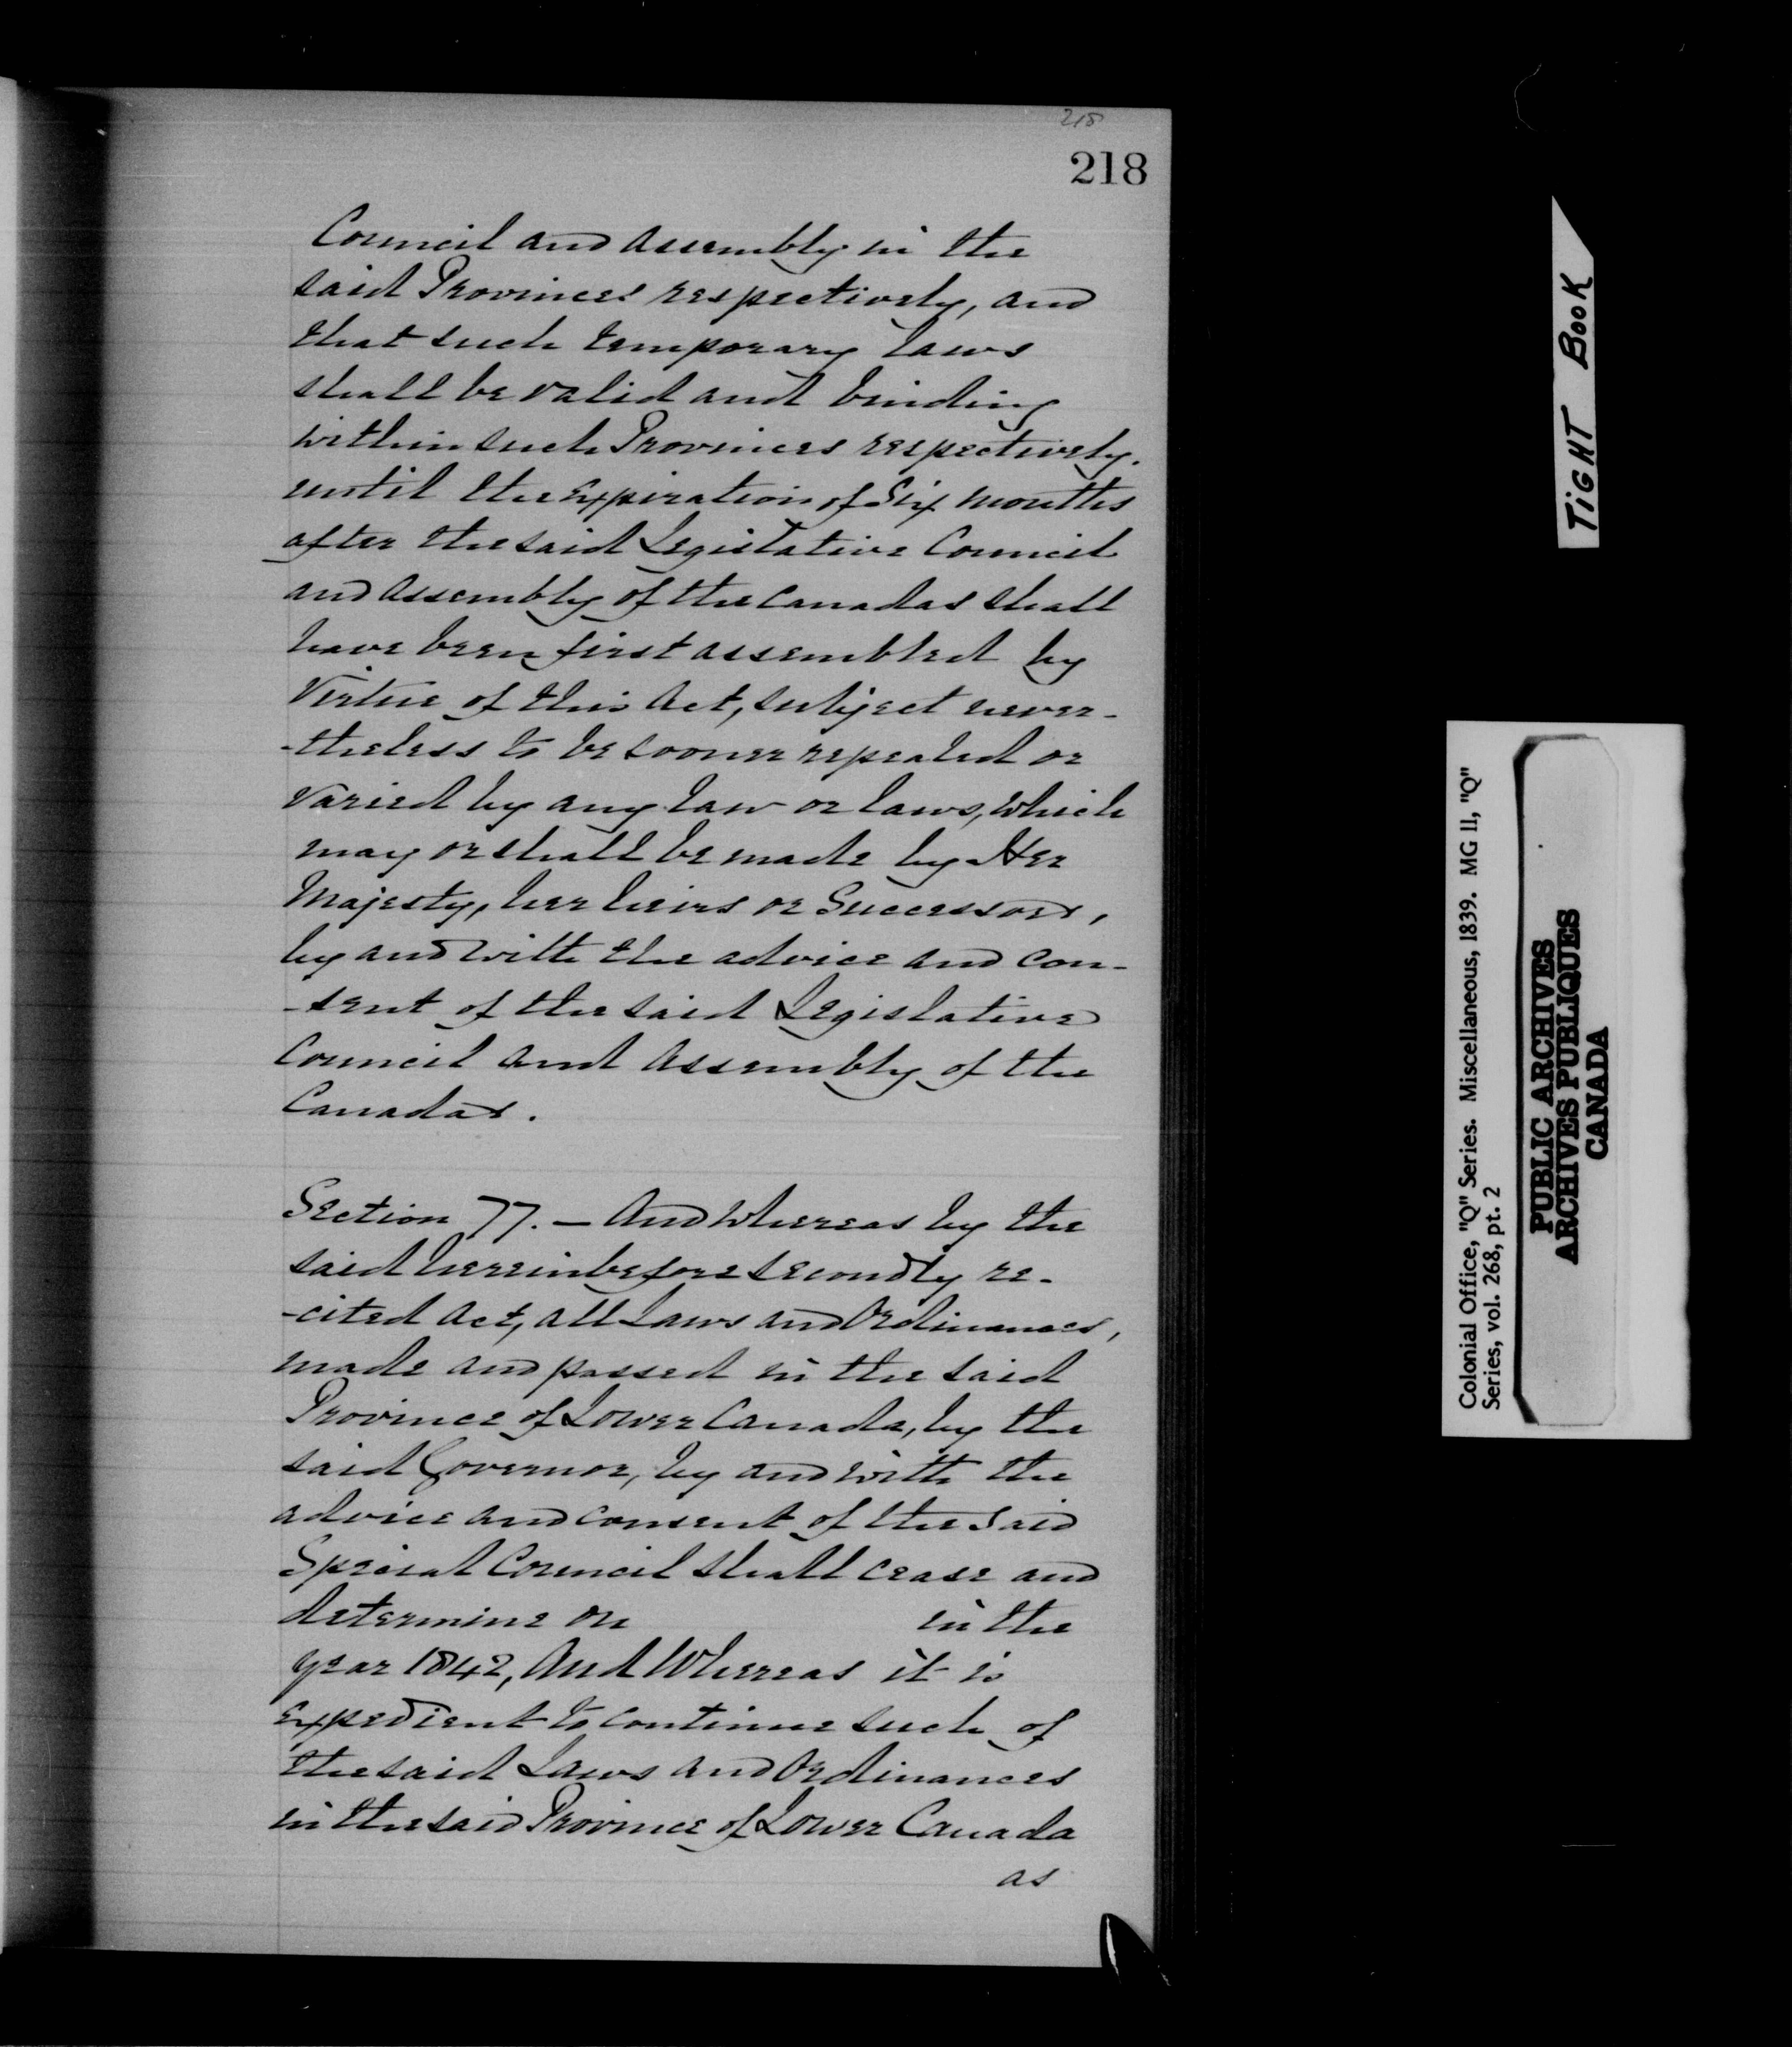 218
218
Council and Assembly in the
said Provinces respectively, and
that such temporary laws
shall be valid and binding
within such Provinces respectively.
until the expiration of Six months
after the said Legislative Council
and Assembly of the Canadas shall
have been first assembled by
Virtue of this Act, subject never-
-theless to be sooner repealed or
varied by any law or laws, which
may or shall be made by Her
Majesty, her heirs or Successors,
by and with the advice and con-
-sent of the said Legislative
Council and Assembly of the
Canadas.
Section 77. - And Whereas by the
said hereinbefore secondly re-
-cited Act, all Laws and Ordinances,
made and passed in the said
Province of Lower Canada, by the
said Governor, by and with the
advice and consent of the said
Special Council shall cease and
determine on in the
year 1842, And Whereas it is
expedient to continue such of
the said Laws and Ordinances
in the said Province of Lower Canada
as
TIGHT BOOK
Colonial Office, "Q" Series. Miscellaneous, 1839. MG 11, "Q"
Series, vol. 268, pt. 2
PUBLIC ARCHIVES
ARCHIVES PUBLIQUES
CANADA